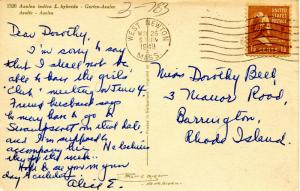 1320 Azalea indica L. hybrida - Garten-Azalee
Azalée - Azalea
3-783
WEST NEWTON
MAY 26
1949
MASS.
Dear Dorothy,
I'm sorry to say
that I shall not be
able to have the girls'
"Club" meeting on June 4.
Friend husband says
he may have to go to
Swampscott on that date,
and I'm supposed to
accompany him.
Hope to see you in your
Alice E.
Miss Dorothy Bell
3 Manor Road,
Barrington,
Rhode Island.